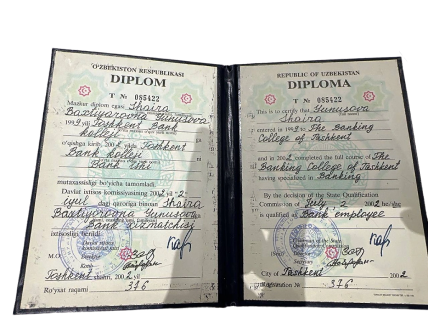 O'ZBEKISTON RESPUBLIKASI
DIPLOM
T № 085422
Mazkur diplom egasi Shoira
Baxtiyarovna Yunusova
1999 yil Tashkent Bank
kolleji
o'qishga kirib, 2002 yilda Tashkent
Bank kolleji ni
Bank ishi
mutaxassisligi bo'yicha tamomladi.
Davlat imtixon komissiyasining 2002 yil "2"
iyul dagi qaroriga binoan Shoira
Baxtiyarovna Yunusova
Bank xizmatchisi
ixtisosligi berildi.
M.O.
Tashkent shahri, 2002 yil
Ro'yxat raqami 376
REPUBLIC OF UZBEKISTAN
DIPLOMA
T № 085422
This is to certify that Yunusova
Shoira
entered in 1999 to The Banking
College of Tashkent
and in 2002 completed the full course of The
Banking College of Tashkent
having specialized in Banking
By the decision of the State Qualification
Commission of July 2 2002 he/she
is qualified as Bank employee
Chairman of the State
Qualification Commission
City of Tashkent 2002
Registration № 376